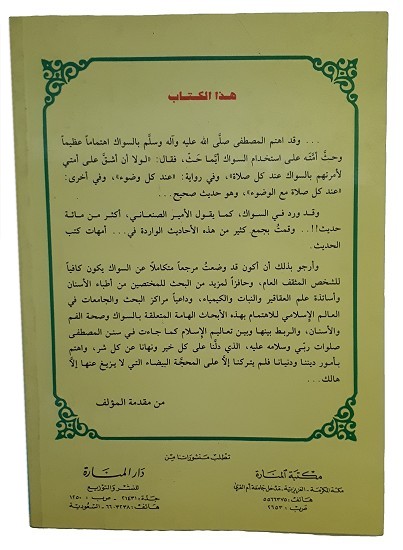 هذا الكتاب
... وقد اهتم المصطفى صلَّى الله عليه وآله وسلَّم بالسواك اهتماماً عظيماً
وحثَّ أمّته على استخدام السواك أيَّما حَثّ، فقال: «لولا أن أشقَّ على أمتي
لأمرتهم بالسواك عند كل صلاة»، وفي رواية: «عند كل وضوء»، وفي أخرى:
«عند كل صلاة مع الوضوء»، وهو حديث صحيح...
وقد ورد في السواك، كما يقول الأمير الصنعاني، أكثر من مائة
حديث!!.. وقمتُ بجمع كثير من هذه الأحاديث الواردة في... أمهات كتب
الحديث.
وأرجو بذلك أن أكون قد وضعتُ مرجعاً متكاملاً عن السواك يكون كافياً
للشخص المثقف العام، وحافزاً لمزيد من البحث للمختصين من أطباء الأسنان
وأساتذة علم العقاقير والنبات والكيمياء، وداعياً مراكز البحث والجامعات في
العالم الإسلامي للاهتمام بهذه الأبحاث الهامة المتعلقة بالسواك وصحة الفم
والأسنان، والربط بينها وبين تعاليم الإسلام كما جاءت في سنن المصطفى
صلوات ربّي وسلامه عليه، الذي دلَّنا على كل خير ونهانا عن كل شر، واهتم
بأمور ديننا ودنيانا فلم يتركنا إلَّا على المحجَّة البيضاء التي لا يزيغ عنها إلَّا
هالك...
من مقدمة المؤلف
تطلب منشوراتنا من
مكتبة المنارة
مكة المكرمة - العزيزية - مدخل جامعة أم القرى
هاتف: ٥٥٦٦٣٧٥
ص.ب: ٢٦٥٣
دار المنارة
للنشر والتوزيع
جدة: ٢١٤٣١ - ص.ب: ١٢٥٠
هاتف: ٦٦٠٣٢٣٨ - السعودية